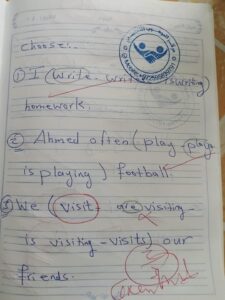 Choose:-
① I (write - writes - is writing)
homework.
② Ahmed often (play - plays
is playing) football.
③ We (visit - are visiting -
is visiting - visits) our
friends.